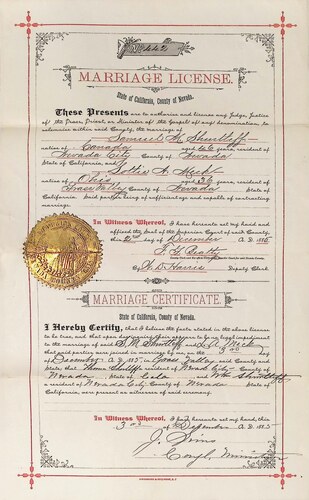 No. 442
MARRIAGE LICENSE.
State of California, County of Nevada.
These Presents are to authorize and license any Judge, Justice
of the Peace, Priest, or Minister of the Gospel of any denomination, to
solemnize within said County, the marriage of
Samuel M Shurtleff
native of Canada aged 26 years, resident of
Nevada City County of Nevada
State of California, and
native of Ohio aged 26 years, resident of
Grass Valley County of Nevada State of
California, said parties being of sufficient age and capable of contracting
marriage.
In Witness Whereof, I have hereunto set my hand and
affixed the Seal of the Superior Court of said County,
this 2nd day of December A. D. 1885
F. G. Beatty
By W. D. Harris Deputy Clerk
MARRIAGE CERTIFICATE.
State of California, County of Nevada.
I Hereby Certify, that I believe the facts stated in the above license
to be true, and that upon due inquiry there appears to be no legal impediment
to the marriage of said S. M. Shurtleff and
that said parties were joined in marriage by me, on the 3rd day
of December A. D. 1885 in Grass Valley said County and
State; that Thomas Shurtleff resident of Nevada City County of
Nevada State of Cala and Wm Shurtleff
a resident of Nevada City County of Nevada State of
California, were present as witnesses of said ceremony.
In Witness Whereof, I have hereunto set my hand, this
3rd day of December A. D. 1885
J. Sims
Congl Minister